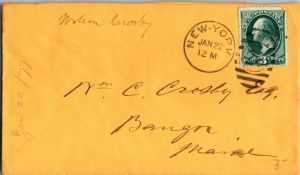 Wilson Crosby
NEW-YORK
JAN 22
12 M
Wm C. Crosby
Bangor
Maine
Jan 20/77